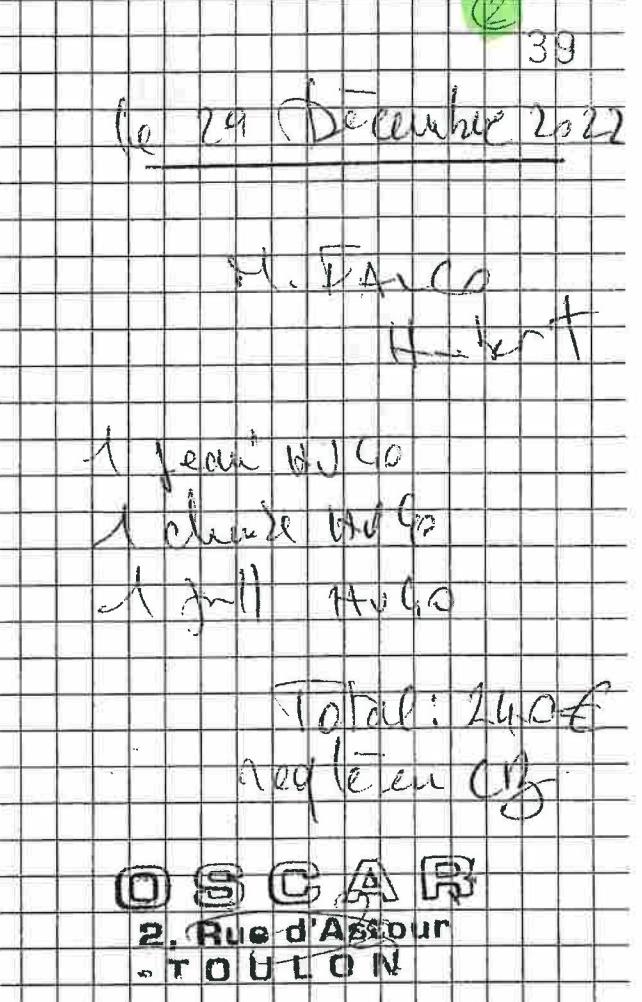 2
39
le 29 Décembre 2022
M. FALCO
Hubert
1 jean HUGO
1 chemise HUGO
1 pull HUGO
Total : 240€
reglé en CB
OSCAR
2, Rue d'Astour
TOULON